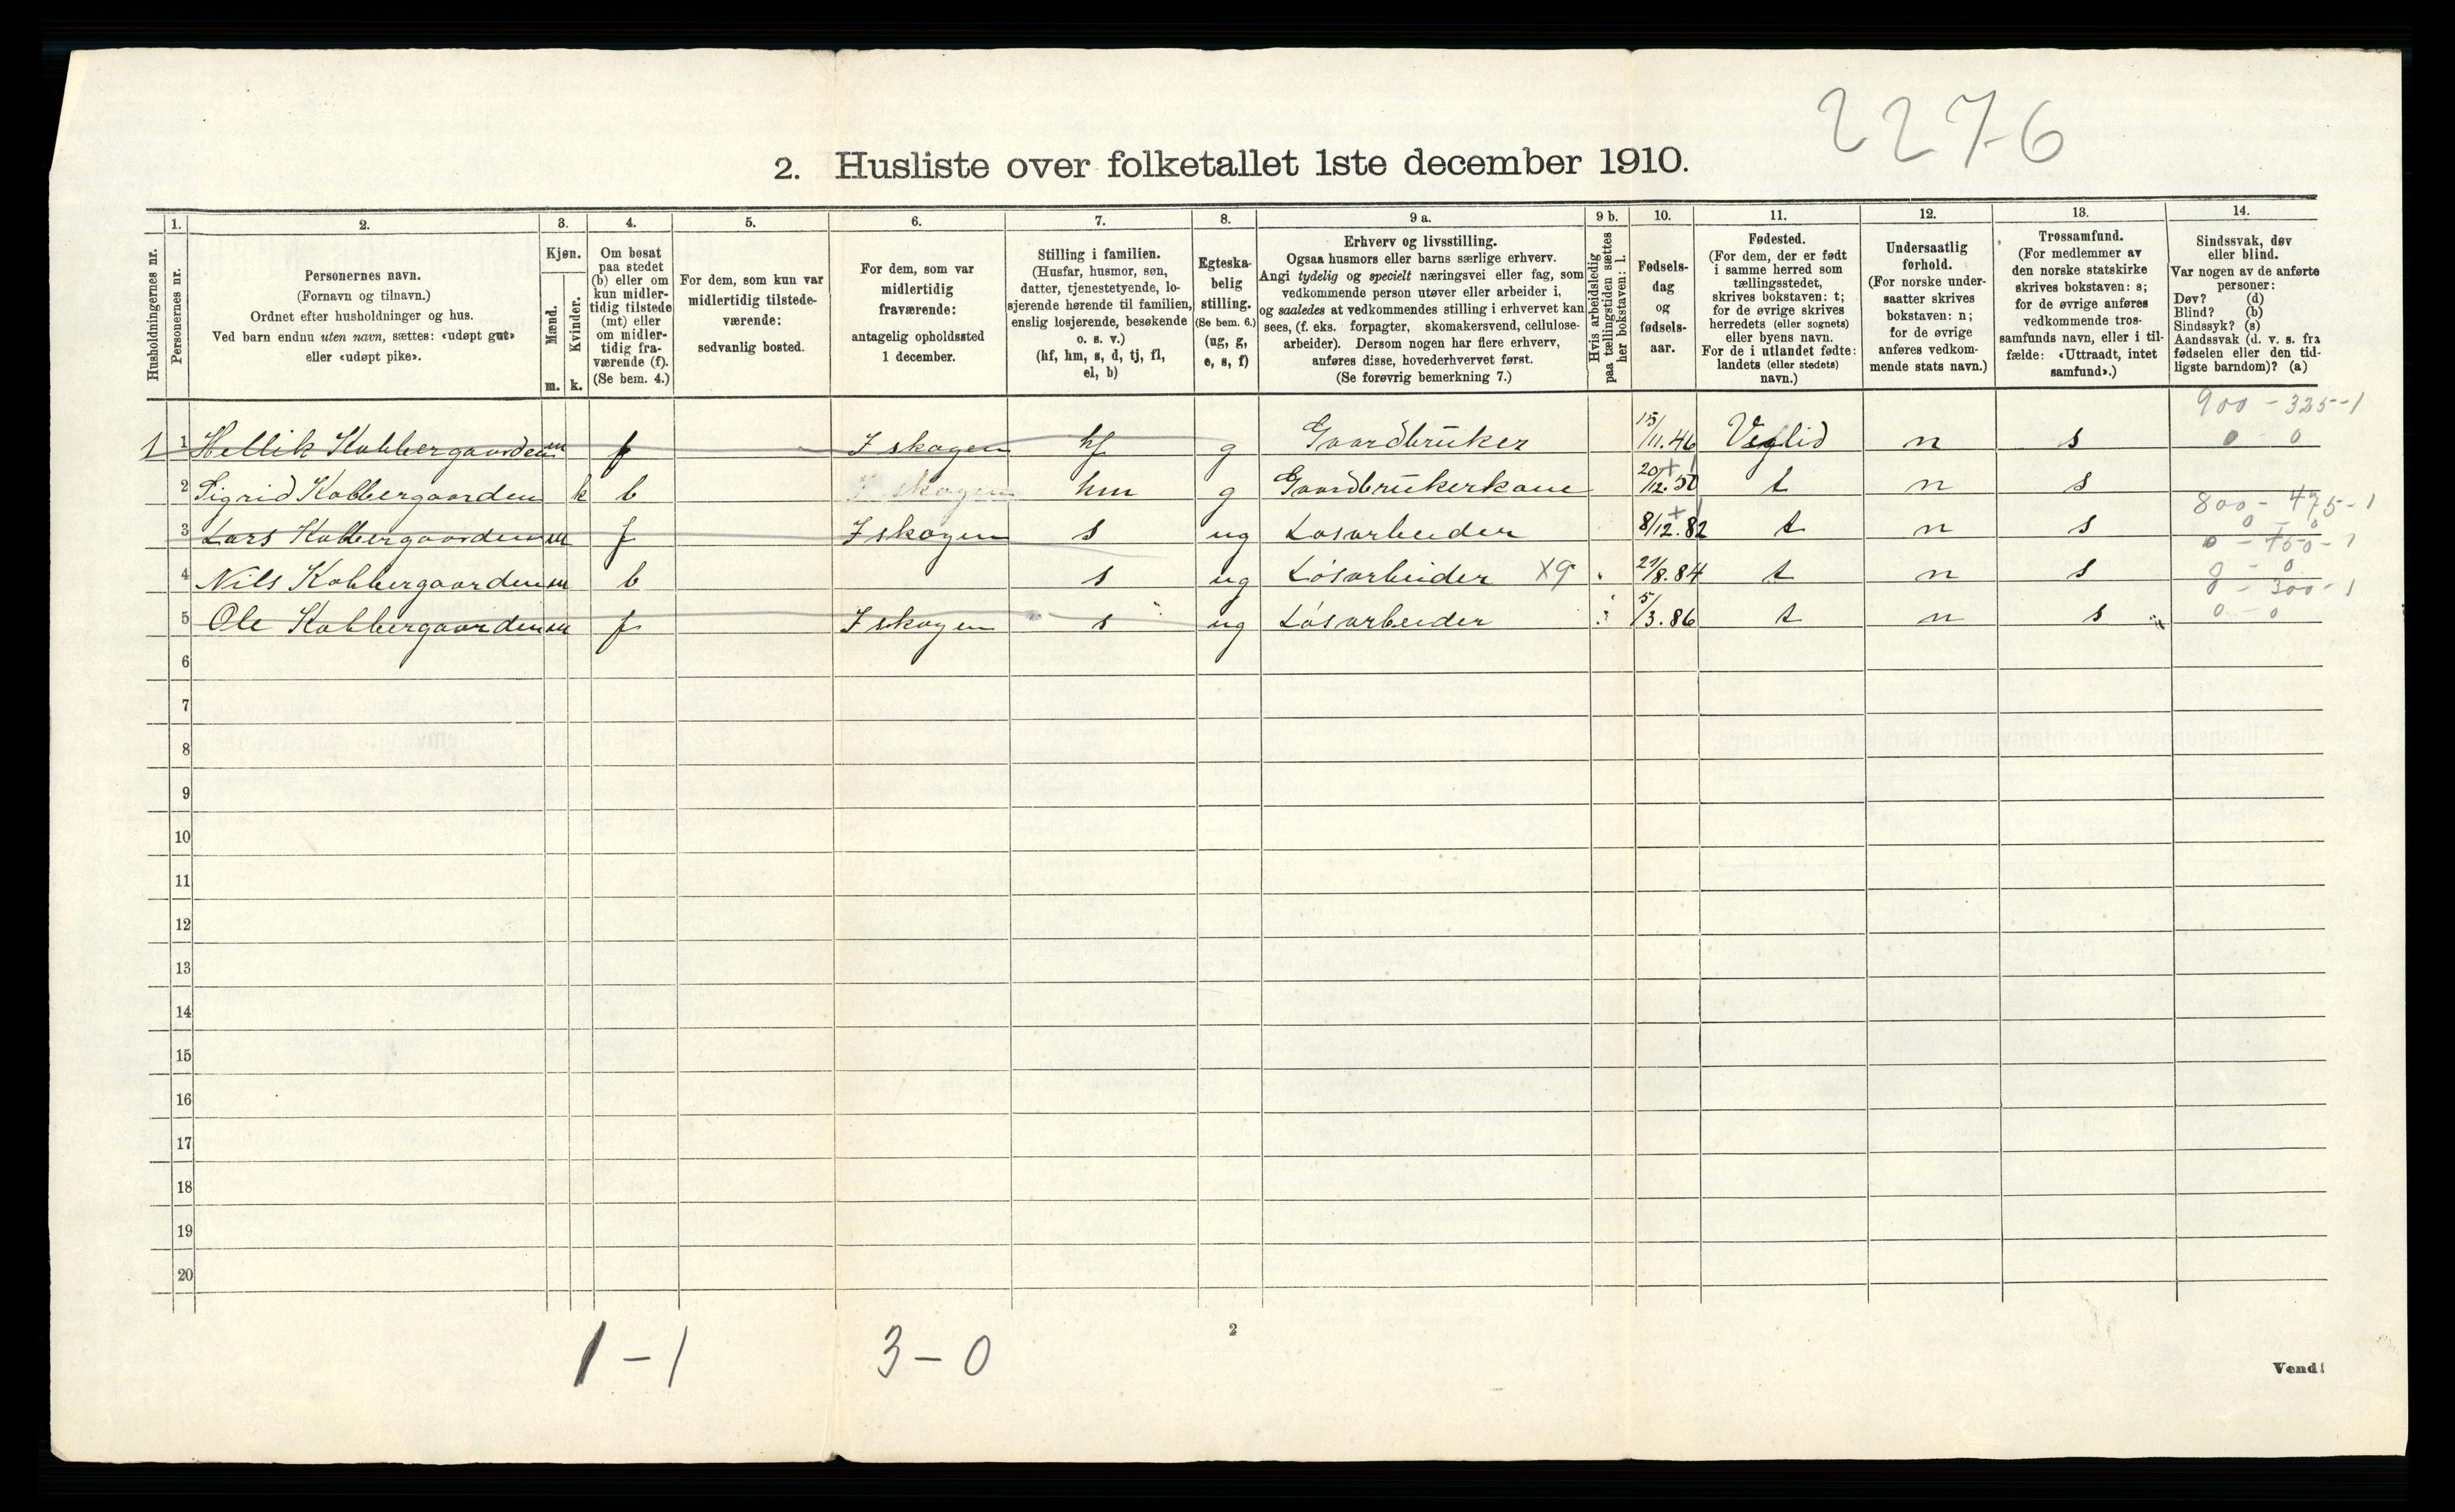 2276
2. Husliste over folketallet 1ste december 1910.
Husholdningernes nr.
1. Personernes nr.
2. Personernes navn.
(Fornavn og tilnavn.)
Ordnet efter husholdninger og hus.
Ved barn endnu uten navn, sættes: «udøpt gut»
eller «udøpt pike».
3. Kjøn.
Mænd. m.
Kvinder. k.
4. Om bosat
paa stedet
(b) eller om
kun midler-
tidig tilstede
(mt) eller
om midler-
tidig fra-
værende (f).
(Se bem. 4.)
5. For dem, som kun var
midlertidig tilstede-
værende:
sedvanlig bosted.
6. For dem, som var
midlertidig
fraværende:
antagelig opholdssted
1 december.
7. Stilling i familien.
(Husfar, husmor, søn,
datter, tjenestetyende, lo-
sjerende hørende til familien,
enslig losjerende, besøkende
o. s. v.)
(hf, hm, s, d, tj, fl,
el, b)
8. Egteska-
belig
stilling.
(Se bem. 6.)
(ug, g,
e, s, f)
9 a. Erhverv og livsstilling.
Ogsaa husmors eller barns særlige erhverv.
Angi tydelig og specielt næringsvei eller fag, som
vedkommende person utøver eller arbeider i,
og saaledes at vedkommendes stilling i erhvervet kan
sees, (f. eks. forpagter, skomakersvend, cellulose-
arbeider). Dersom nogen har flere erhverv,
anføres disse, hovederhvervet først.
(Se forøvrig bemerkning 7.)
9 b. Hvis arbeidsledig
paa tællingstiden sættes
her bokstaven: l.
10. Fødsels-
dag
og
fødsels-
aar.
11. Fødested.
(For dem, der er født
i samme herred som
tællingsstedet,
skrives bokstaven: t;
for de øvrige skrives
herredets (eller sognets)
eller byens navn.
For de i utlandet fødte:
landets (eller stedets)
navn.)
12. Undersaatlig
forhold.
(For norske under-
saatter skrives
bokstaven: n;
for de øvrige
anføres vedkom-
mende stats navn.)
13. Trossamfund.
(For medlemmer av
den norske statskirke
skrives bokstaven: s;
for de øvrige anføres
vedkommende tros-
samfunds navn, eller i til-
fælde: «Uttraadt, intet
samfund».)
14. Sindssvak, døv
eller blind.
Var nogen av de anførte
personer:
Døv? (d)
Blind? (b)
Sindssyk? (s)
Aandssvak (d. v. s. fra
fødselen eller den tid-
ligste barndom)? (a)
900 - 325 - 1
1 1 Hellik Kobbergaarden m f I skogen hf g Gaardbruker 15/11.46 Veglid n s 0 0
2 Sigrid Kobbergaarden k b I skogen hm g Gaardbrukerkone 20/12.50 t n s
800 - 475 - 1
3 Lars Kobbergaarden m f I skogen s ug Løsarbeider 8/12.82 t n s 0 - 0
4 Nils Kobbergaarden m b s ug Løsarbeider X9 /8.84 t n s 0 - 0
0 - 300 - 1
5 Ole Kobbergaarden m f I skogen s ug Løsarbeider 5/3.86 t n s 0 - 0
6
7
8
9
10
11
12
13
14
15
16
17
18
19
20
1 - 1 3 - 0
2
Vend!